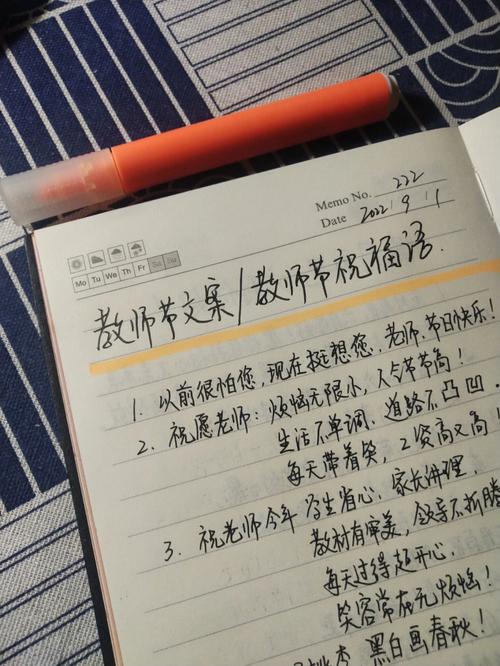 Memo No. 222
Date 2022 9 1
Mo Tu We Th Fr Sa Su
教师节文案/教师节祝福语.
1. 以前很怕您,现在挺想您,老师.节日快乐!
2. 祝愿老师:烦恼无限小,人人节节高!
生活不单调、道路不凸凹
每天带着笑,工资高又高!
3. 祝老师今年 学生省心、家长讲理、
教材有审美,领导不折腾
每天过得超开心.
笑容常在无烦恼!
黑白画春秋!